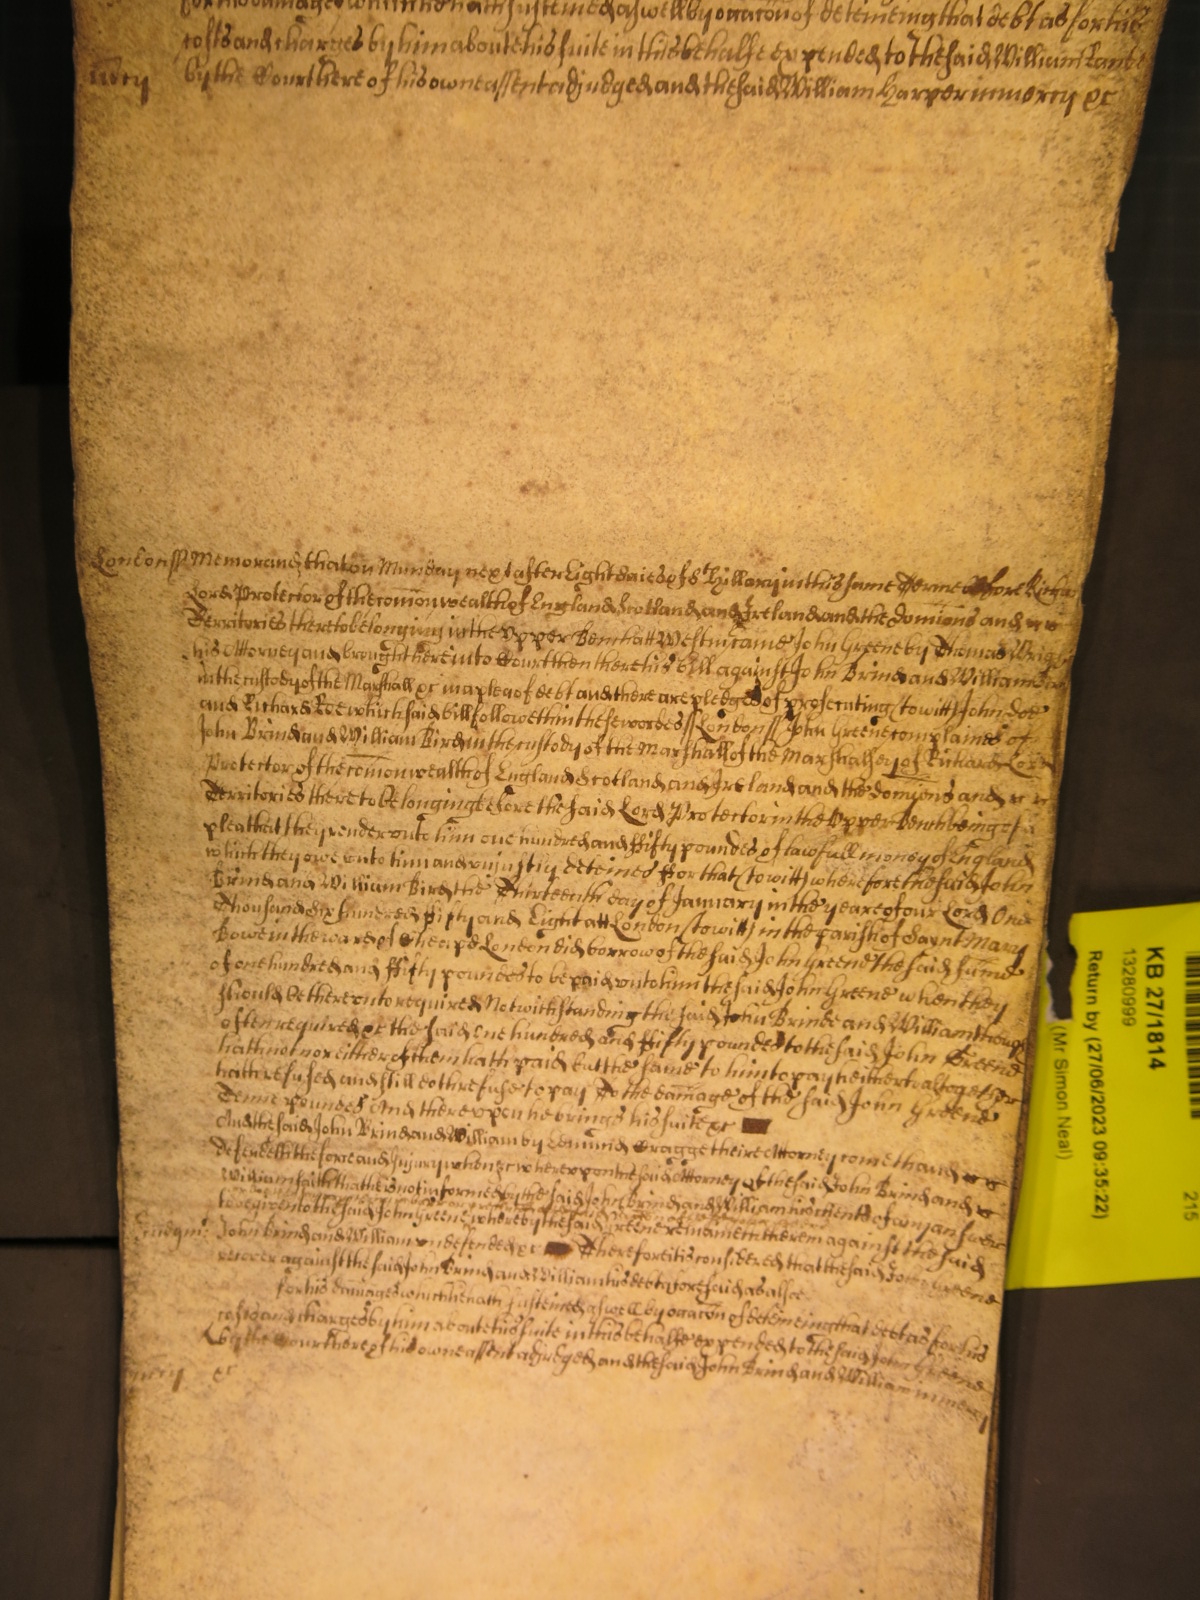 for his damages which he hath susteined aswell by occacon of deteineing that debt as for his
costs and charges by him about his suite in this behalfe expended to the said William
mercy by the Court here of his owne assent adjudged and the said William Harper in mercy &c
London ss Memorand that on Munday next after Eight daies of St Hillary in this same Terme before Richard
Lord Protector of the comonwealth of England Scotland and Ireland and the Dominions and
Territories thereto belonging in the Upper Bench att Westm came John Greene by Thomas
his Attorney and brought here into Court then there his bill against John Brind and William
in the custody of the Marshall &c in a plea of debt and there are pledges of prosecuting (towitt) John Doe
and Richard Roe which said bill followeth in these wordes ss London ss John Greene complaines of
John Brind and William Bird in the custody of the Marshall of the Marshallsey of Richard Lord
Protector of the comonwealth of England Scotland and Ireland and the Dominions and
Territories thereto belonging before the said Lord Protector in the Upper Bench being of a
plea that they render unto him one hundred and ffifty poundes of lawfull money of England
which they owe unto him and unjustly deteine ffor that (towitt) wherefore the said John
Brind and William Bird the Thirteenth day of January in the yeare of our Lord One
Thousand six hundred ffifty and Eight att London (towitt) in the parish of Saynt Mary
Bowe in the ward of Cheape London did borrow of the said John Greene the said summe
of one hundred and ffifty poundes to be paid unto him the said John Greene when they
should be thereunto required Notwithstanding the said John Brinde and William though
often required &c the said One hundred and ffifty poundes to the said John Greene
hath not nor either of them hath paid but the same to him to pay
hath refused and still doth refuse to pay To the damage of the said John Greene
Tenne poundes And thereuppon he brings his suite &c
And the said John Brind and William by Edmund Cragge theire Attorney cometh and
defendeth the force and Injury when &c whereupon the said Attorney of the said John Brind and
William saith that he is not informed by the said John Brind and William his Clients of any answere
to be given to the said John Greene whereby the said Greene remaineth therein against the said
John Brind and William undefended &c Therefore it is considered that the said John Greene
recover against the said John Brind and William his debt aforesaid as alsoe
for his damages which he hath susteined aswell by occacon of deteineing that debt as for his
costs and charges by him about his suite in this behalfe expended to the said John Greene
by the Court here of his owne assent adjudged and the said John Brind and William in mercy
mercy &c
KB 27/1814
13280999
Return by (27/06/2023 09:35:22)
(Mr Simon Neal)
215